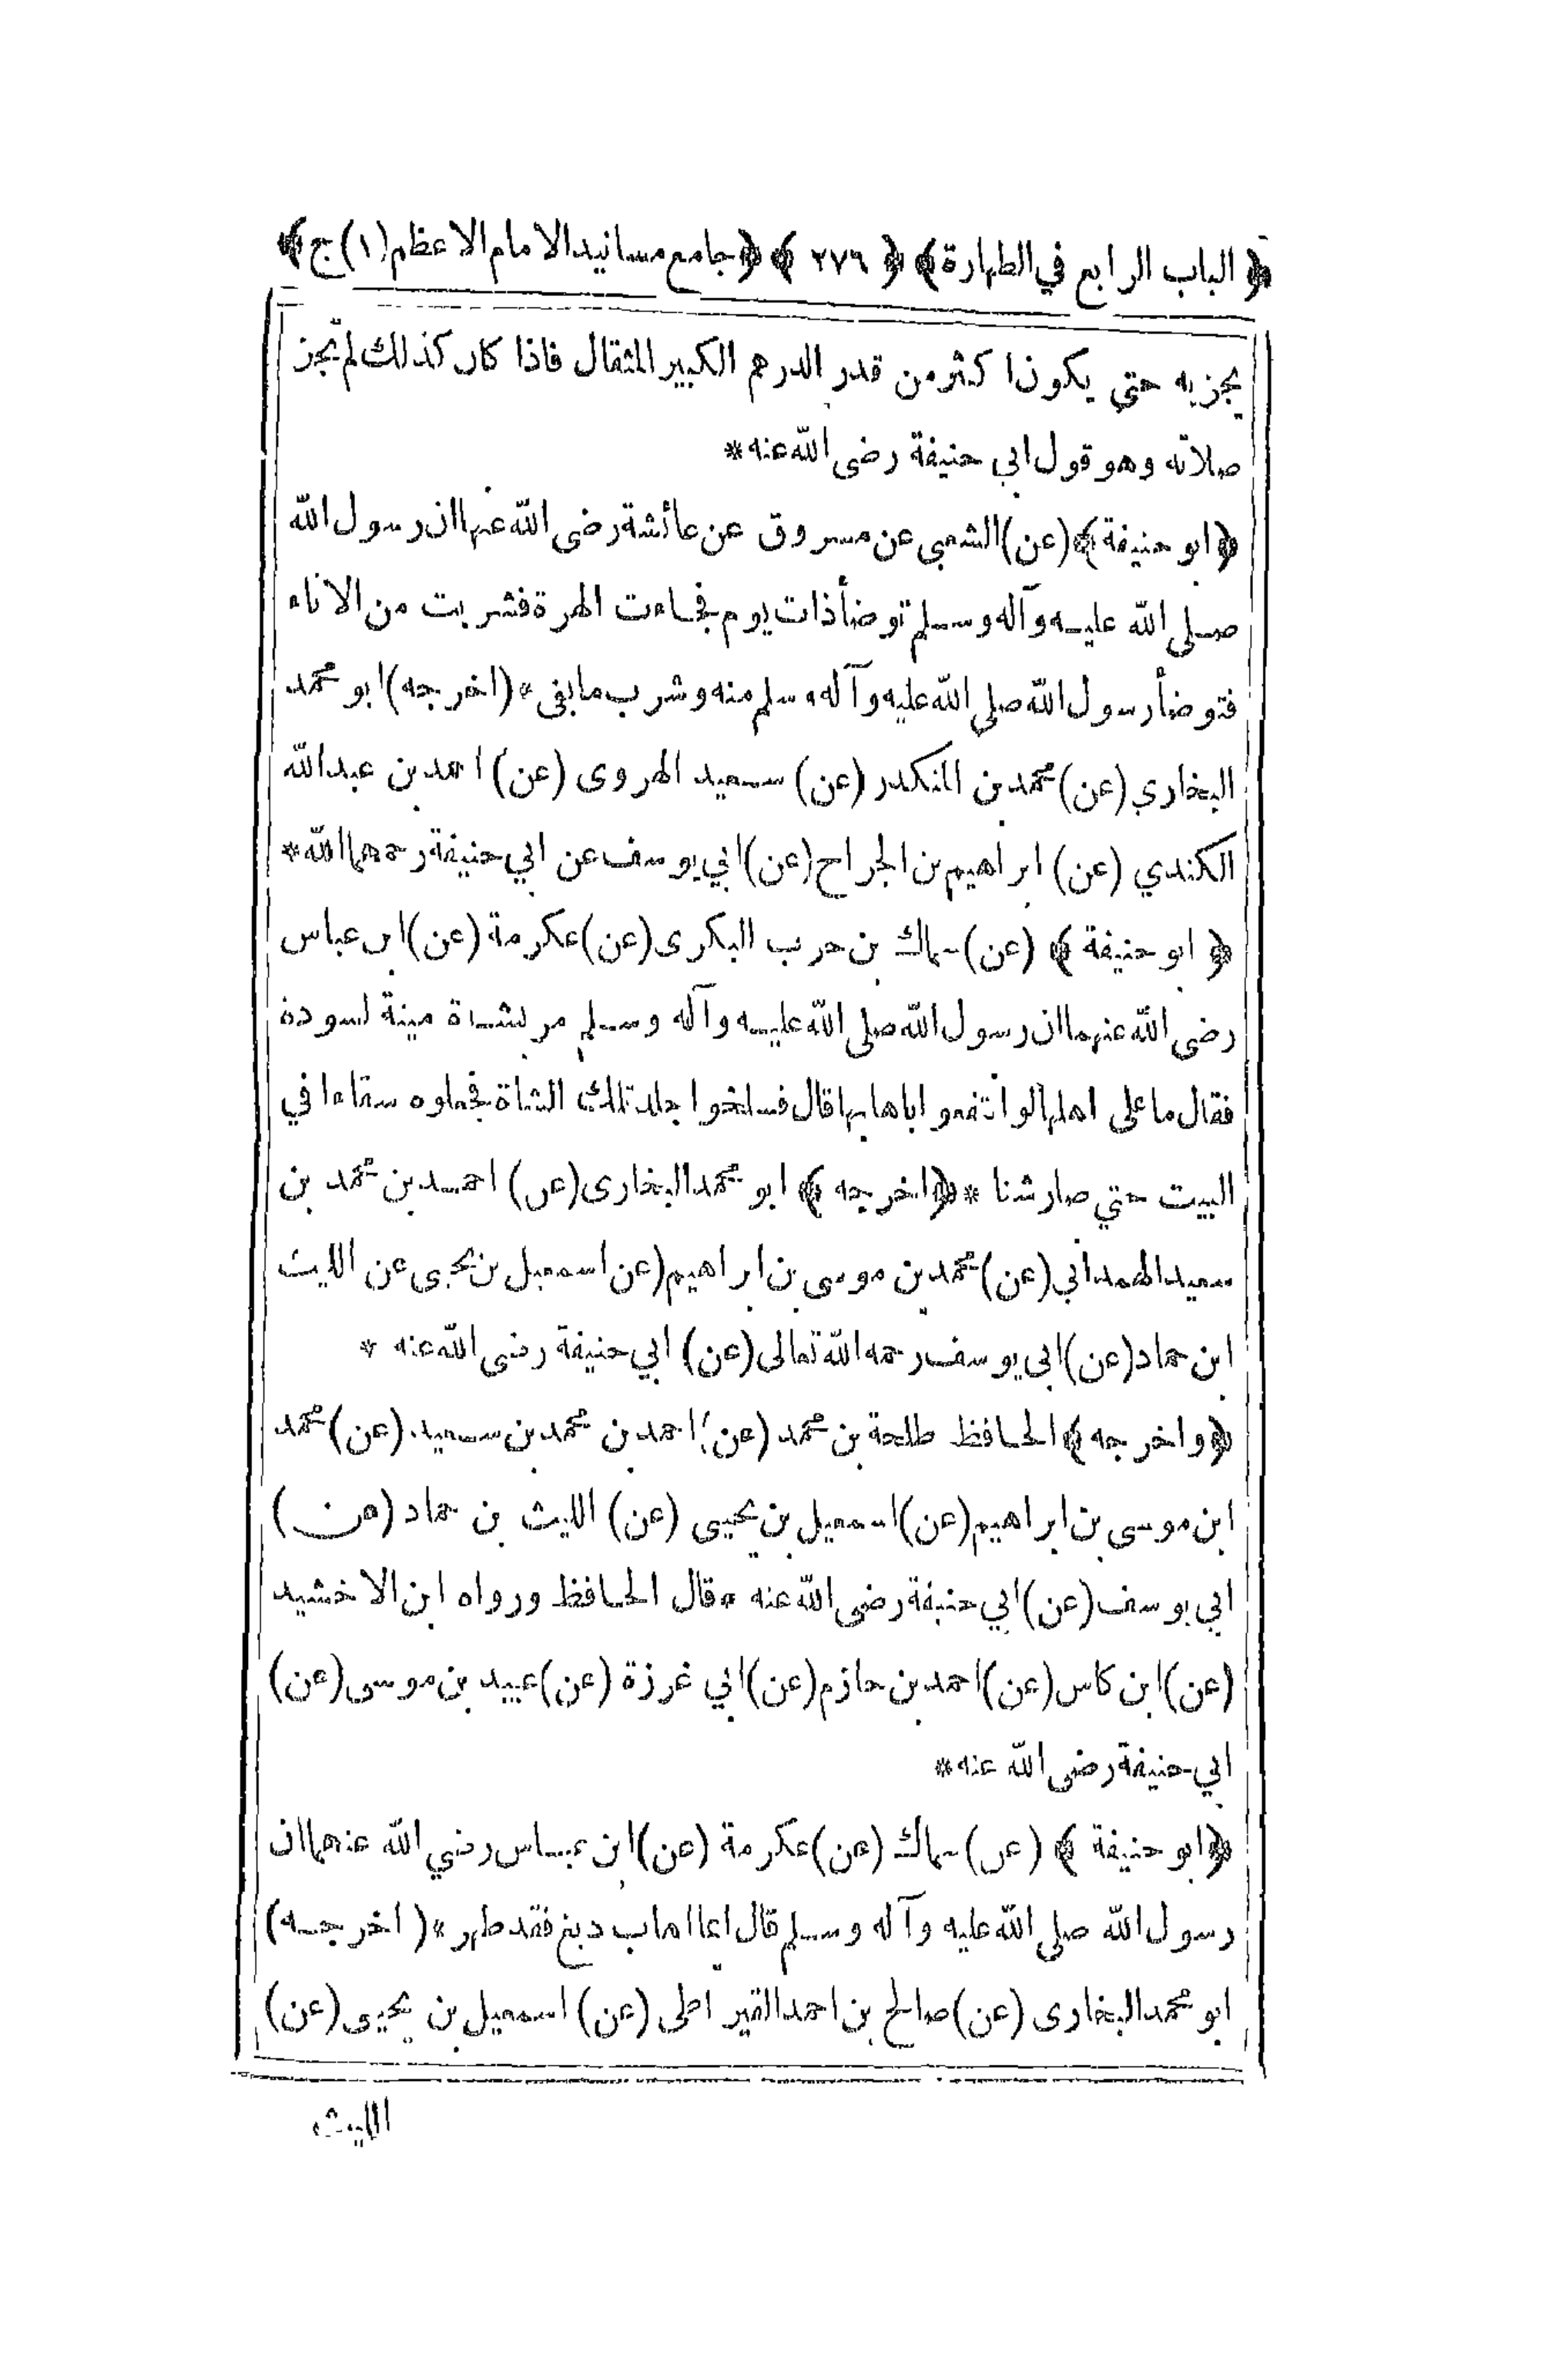 ﴿ الباب الرابع في الطهارة ﴾ ﴿ ٢٧٦ ﴾ ﴿ جامع مسانيد الامام الاعظم (١) ج ﴾
يجزيه حتي يكون ا كثر من قدر الدرهم الكبير المثقال فاذا كان كذلك لم تجز
صلاته وهو قول ابي حنيفة رضى الله عنه *
﴿ ابو حنيفة ﴾ (عن) الشعبي عن مسروق عن عائشة رضى الله عنها ان رسول الله
صلى الله عليه وآله وسلم توضأ ذات يوم فجاءت الهرة فشربت من الاناء
فتوضأ رسول الله صلى الله عليه وآله وسلم منه وشرب ما بقى * (اخرجه) ابو محمد
البخاري (عن) محمد بن المنكدر (عن) سعيد الهروى (عن) احمد بن عبد الله
الكندي (عن) ابراهيم بن الجراح (عن) ابي يوسف عن ابي حنيفة رحمهما الله *
﴿ ابو حنيفة ﴾ (عن) سماك بن حرب البكرى (عن) عكرمة (عن) ابن عباس
رضى الله عنهما ان رسول الله صلى الله عليه وآله وسلم مر بشاة ميتة لسودة
فقال ما على اهلها لو انتفعوا باهابها قال فسلخوا جلد تلك الشاة فجعلوه سقاءا في
البيت حتي صار شنا * ﴿ اخرجه ﴾ ابو محمد البخارى (عن) احمد بن محمد بن
سعيد الهمداني (عن) محمد بن موسى بن ابراهيم (عن اسمعيل بن يحيى عن الليث
ابن حماد (عن) ابى يوسف رحمه الله تعالى (عن) ابي حنيفة رضى الله عنه *
﴿ واخرجه ﴾ الحافظ طلحة بن محمد (عن) احمد بن محمد بن سعيد (عن) محمد
ابن موسى بن ابراهيم (عن) اسمعيل بن يحيى (عن) الليث بن حماد (عن)
ابي يوسف (عن) ابي حنيفة رضى الله عنه * قال الحافظ ورواه ابن الاخشيد
(عن) ابن كاس (عن) احمد بن حازم (عن) ابي غرزة (عن) عبيد بن موسى (عن)
ابي حنيفة رضى الله عنه *
﴿ ابو حنيفة ﴾ (عن) سماك (عن) عكرمة (عن) ابن عباس رضي الله عنهما ان
رسول الله صلى الله عليه وآله وسلم قال ايما اهاب دبغ فقد طهر * (اخرجه)
ابو محمد البخارى (عن) صالح بن احمد القيراطى (عن) اسمعيل بن يحيى (عن)
الليث